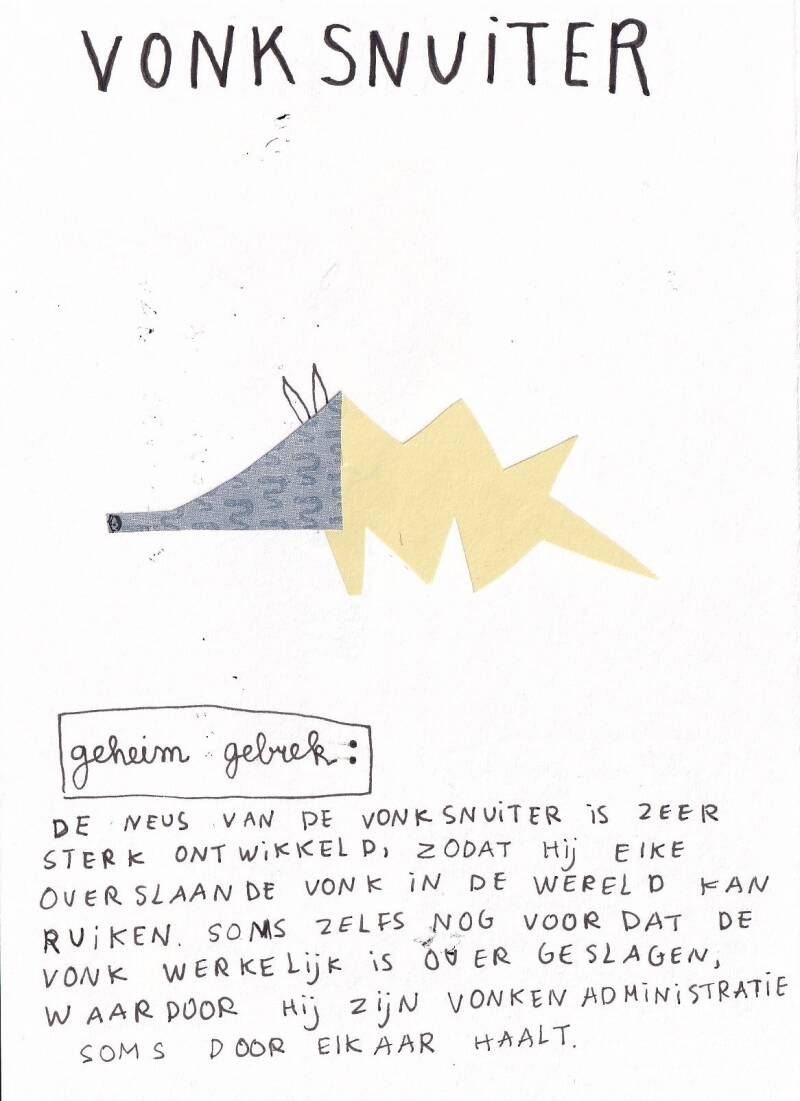 VONKSNUiTER
geheim gebrek:
DE NEUS VAN DE VONKSNUiTER iS ZEER
STERK ONTWiKKELD, ZODAT Hij ElKE
OVERSLAANDE VONK iN DE WERELD KAN
RUiKEN. SOMS ZELFS NOG VOORDAT DE
VONK WERKELijK iS OVERGESLAGEN,
WAARDOOR Hij ZijN VONKENADMiNiSTRATiE
SOMS DOOR ElKAAR HAALT.